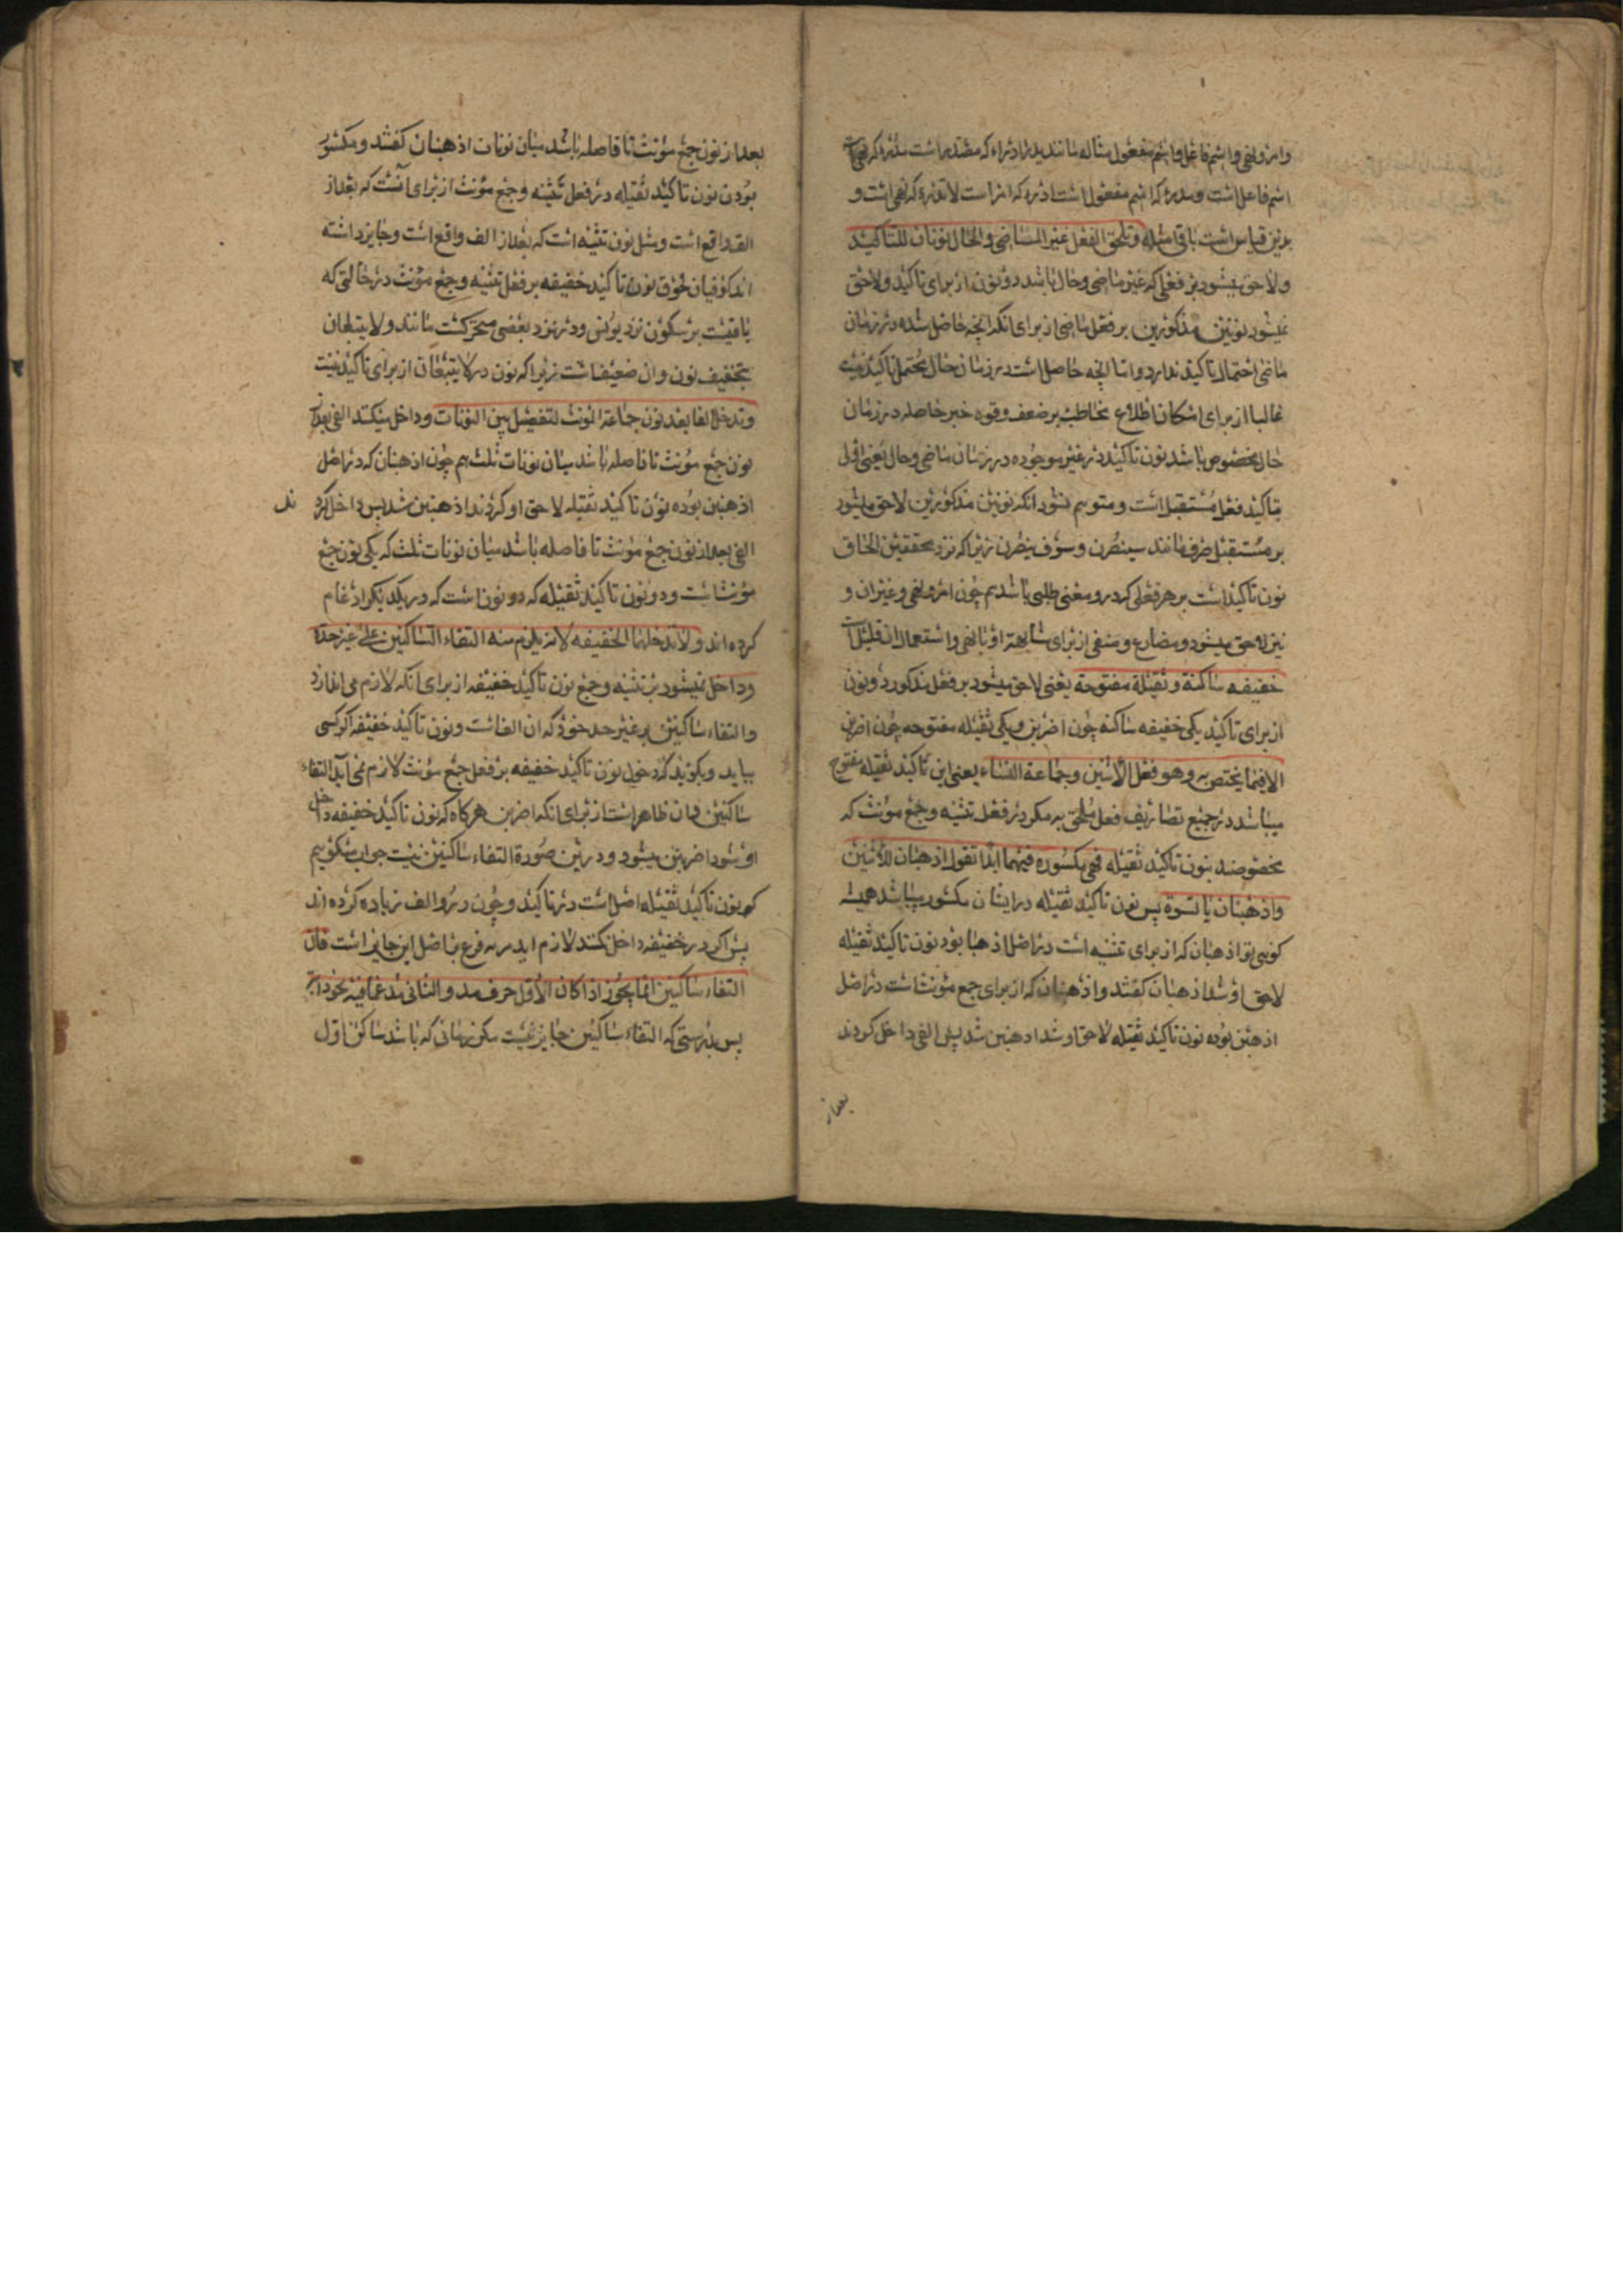 وامر و نهی و اسم فاعل و اسم مفعول مثاله مانند یذراذراء که مصدر است
اسم فاعل است و که اسم مفعول است اذره که امر است لاتذره که نهی است و
بدین قیاس است باقی امثله و تلحق الفعل غیر الماضی و الحال نونان للتاکید
و لاحق میشود بر فعلی که غیر ماضی و حال باشد دو نون از برای تاکید و لاحق
نمیشود نونین مذکورین بر فعل ماضی از برای انکه انچه حاصل شده در زمان
ماضی احتمال تاکید ندارد و اما انچه حاصل است در زمان حال محتمل تاکید نیست
غالبا از برای امکان اطلاع مخاطب بر ضعف و قوه خبر حاصله در زمان
حال مخصوص باشد نون تاکید در غیر موجوده در زمان ماضی و حال یعنی اولی
بتاکید فعل مستقبل است و متوهم نشود انکه نونین مذکورین لاحق میشود
بر مستقبل صرف مانند سینصرن و سوف ینصرن زیرا که نزد محققین الحاق
نون تاکید است بر هر فعلی که در و معنی طلبی باشد هم چون امر و نهی و غیر ان و
نیز لاحق میشود و مضارع و منفی از برای مشابهة او با نهی و استعمال ان قلیل است
خفیفه ساکنة و ثقیلة مفتوحة یعنی لاحق میشود بر فعل مذکور دو نون
از برای تاکید یکی خفیفه ساکنه چون اضربن و یکی ثقیله مفتوحه چون اضربن
الا فیما یختص به و هو فعل الاثنین و جماعة النساء یعنی این تاکید ثقیله مفتوح
میباشد در جمیع تصاریف فعل ملحق به مکر در فعل تثنیه و جمع مؤنث که
مخصوصند بنون تاکید ثقیله فهی مکسوره فیهما ابدا تقول اذهبان للاثنین
و اذهبنان یا نسوة پس نون تاکید ثقیله در ایشان مکسور میباشد همیشه
کویی تو اذهبان که از برای تثنیه است در اصل اذهبا بود نون تاکید ثقیله
لاحق او شد اذهبان کفتند و اذهبنان که از برای جمع مؤنث است در اصل
اذهبن بوده نون تاکید ثقیله لاحق او شد اذهبنن شد پس الفی داخل کردند
بعد از
بعد از نون جمع مؤنث تا فاصله باشد میان نونات اذهبنان کفتند و مکسور
بودن نون تاکید ثقیله در فعل تثنیه و جمع مؤنث از برای آنست که بعد از
الف واقع است و مثل نون تثنیه است که بعد از الف واقع است و جایز داشته
اند کوفیان لحوق نون تاکید خفیفه بر فعل تثنیه و جمع مؤنث در حالتی که
باقیست بر سکون نزد یونس و در نزد بعضی متحرکست مانند و لا یتبعان
بتخفیف نون و ان ضعیف است زیرا که نون در لا یتبعان از برای تاکید نیست
و تدخل الفا بعد نون جماعة المونث لتفصل بین النونات و داخل میکند الفی بعد از
نون جمع مؤنث تا فاصله باشد میان نونات ثلث هم چون اذهبنان که در اصل
اذهبن بوده نون تاکید ثقیله لاحق او کردند اذهبنن شد پس داخل کرد
ند
الفی بعد از نون جمع مؤنث تا فاصله باشد میان نونات ثلث که یکی نون جمع
مؤنث است و دو نون تاکید ثقیله که دو نون است که در یکدیکر ادغام
کرده اند و لا تدخلهما الخفیفه لانه یلزم منه التقاء الساکنین علی غیر حده
و داخل نمیشود بر تثنیه و جمع نون تاکید خفیفه از برای انکه لازم می اندازد
و التقاء ساکنین بر غیر حد خود که ان الف است و نون تاکید خفیفه اکر کسی
بیاید و بکوید که دخول نون تاکید خفیفه بر فعل جمع مؤنث لازم نمی آید التقاء
ساکنین و ان ظاهر است از برای انکه اضربن هرکاه که نون تاکید خفیفه داخل
او شود اضربنن میشود و درین صورة التقاء ساکنین نیست جواب میکوییم
که نون تاکید ثقیله اصل است در تاکید و چون در و الف زیاده کرده اند
پس اکر در خفیفه داخل نکنند لازم اید مزیه فرع بر اصل این جایز است فان
التقاء ساکنین انما یجوز اذا کان الاول حرف مد و الثانی مدغما فیه نحو دابه
پس بدرستی که التقاء ساکنین جایز نیست مکر زمانی که باشد ساکن اول